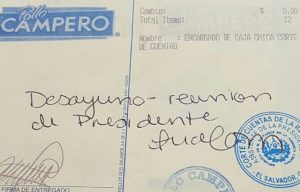 Pollo
CAMPERO
Cambio: $ 0.00
Total Items: 12
Nombre : ENCARGADO DE CAJA CHICA CORTE
DE CUENTAS
Desayuno - reunion
de Presidente
CORTE DE CUENTAS DE LA
EL SALVADOR
FIRMA DE ENTREGADO
CAMPE